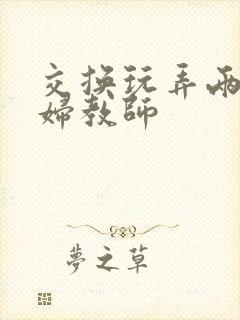 交换玩弄两
婦教師
夢之草